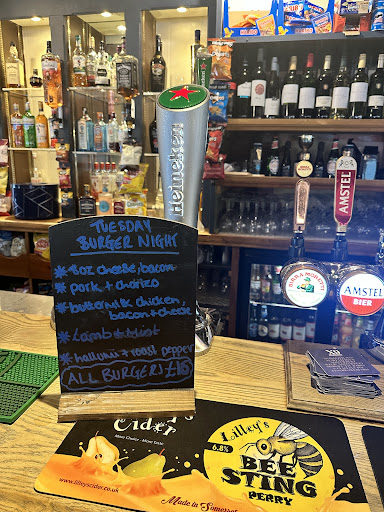 Heineken
AMSTEL
BIRRA MORETTI
AMSTEL
BIER
TUESDAY
BURGER NIGHT
* 8oz cheese, bacon
* pork + chorizo
* buttermilk chicken,
bacon + cheese
* Lamb + Mint
* hallumi + roast pepper
ALL BURGERS £16
Cider
www.lilleyscider.co.uk
Lilley's
6.8%
BEE
STING
PERRY
Made in Somerset